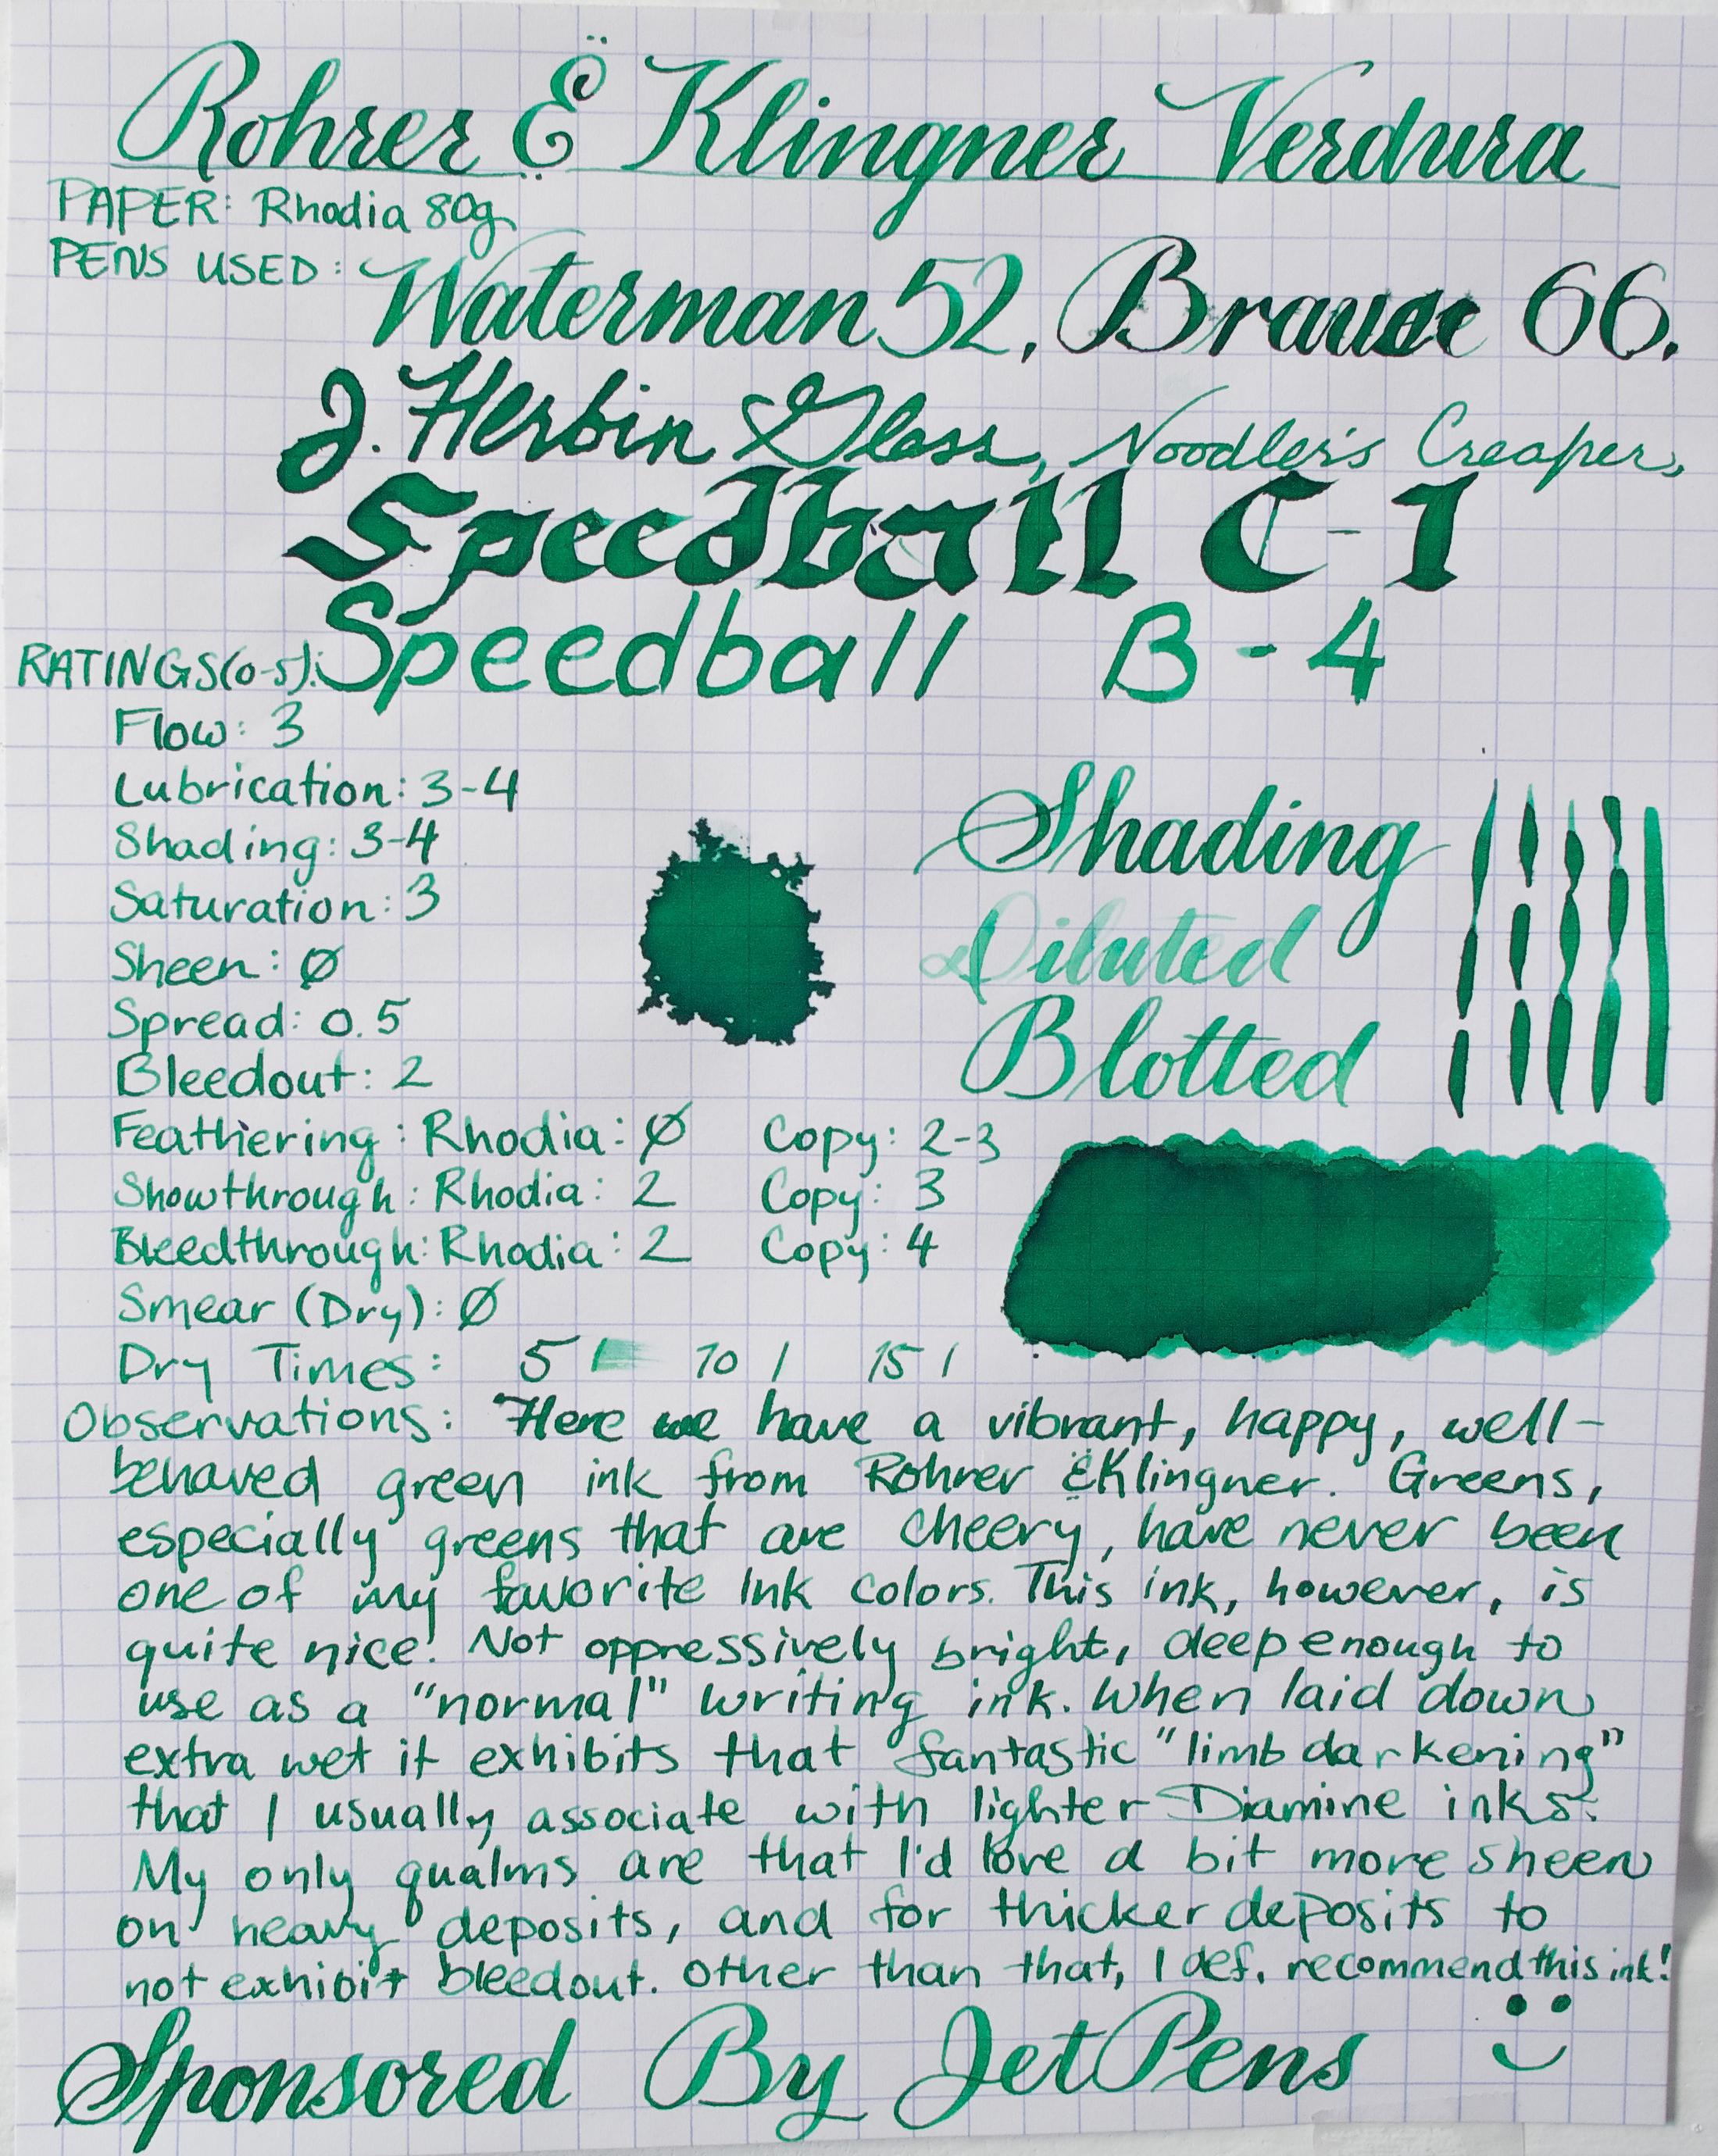 Rohrer & Klingner Verdura
PAPER: Rhodia 80g
PENS USED: Waterman 52, Brause 66,
J. Herbin Glass, Noodler's Creaper,
Speedball C-1
Speedball B-4
RATINGS (0-5):
Flow: 3
Lubrication: 3-4
Shading: 3-4
Saturation: 3
Sheen: Ø
Spread: 0.5
Bleedout: 2
Shading
Diluted
Blotted
Feathering: Rhodia: Ø Copy: 2-3
Showthrough: Rhodia: 2 Copy: 3
Bleedthrough: Rhodia: 2 Copy: 4
Smear (Dry): Ø
Dry Times: 5 10 15
Observations: Here we have a vibrant, happy, well-
behaved green ink from Rohrer & Klingner. Greens,
especially greens that are cheery, have never been
one of my favorite ink colors. This ink, however, is
quite nice! Not oppressively bright, deep enough to
use as a "normal" writing ink. When laid down
extra wet it exhibits that fantastic "limb darkening"
that I usually associate with lighter Diamine inks.
My only qualms are that I'd love a bit more sheen
on heavy deposits, and for thicker deposits to
not exhibit bleedout. Other than that, I def. recommend this ink!
Sponsored By JetPens